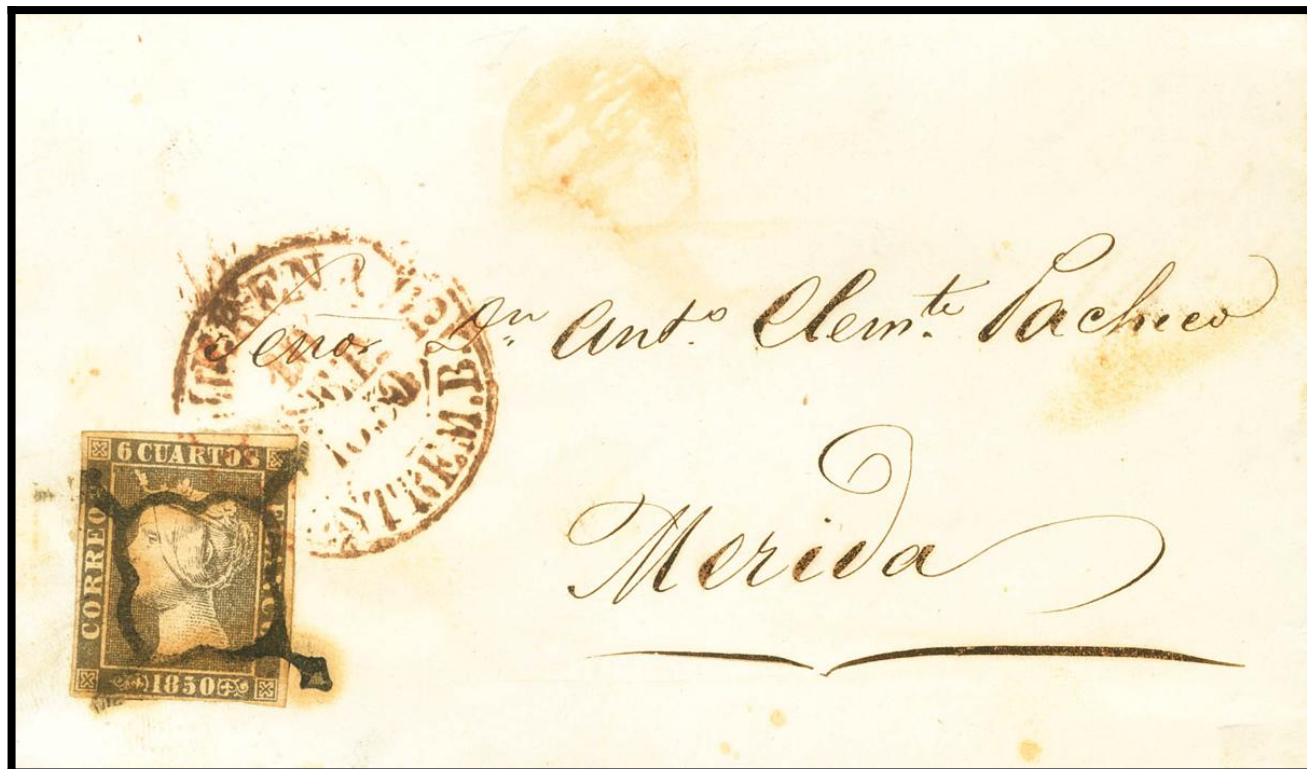 Señor Dn. Anto. Clemte. Pacheco
Merida
EXTREM.B.
1850
6 CUARTOS
CORREOS
FRANCO
1850